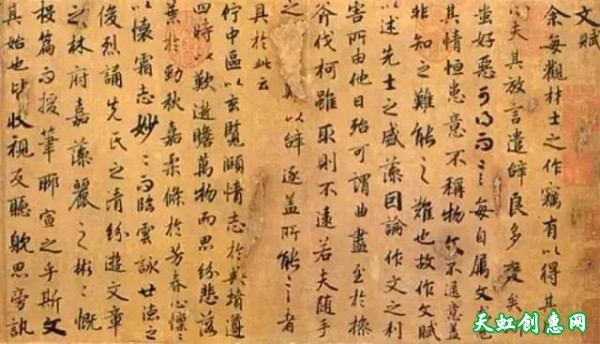 文賦
余每觀材士之作竊有以得其
以夫其放言遣辭良多變矣
蚩好惡可得而言每自属文
其情恒患意不稱物文不逮意蓋
非知之難能之難也故作文賦
以述先士之盛藻因論作文之利
害所由他日殆可謂曲盡至於操
斧伐柯雖取則不遠若夫随手
之難以辭逐蓋所能言者
具於此云
佇中區以玄覽頤情志於典墳遵
四時以歎逝瞻萬物而思紛悲落
葉於勁秋嘉柔條於芳春心懍〻
以懷霜志妙〻而臨雲詠世德之
俊烈誦先民之清芬遊文章
之林府嘉藻麗之彬〻慨
投篇而援筆聊宣之乎斯文
其始也皆收視反聽躭思旁訊
天虹创惠网